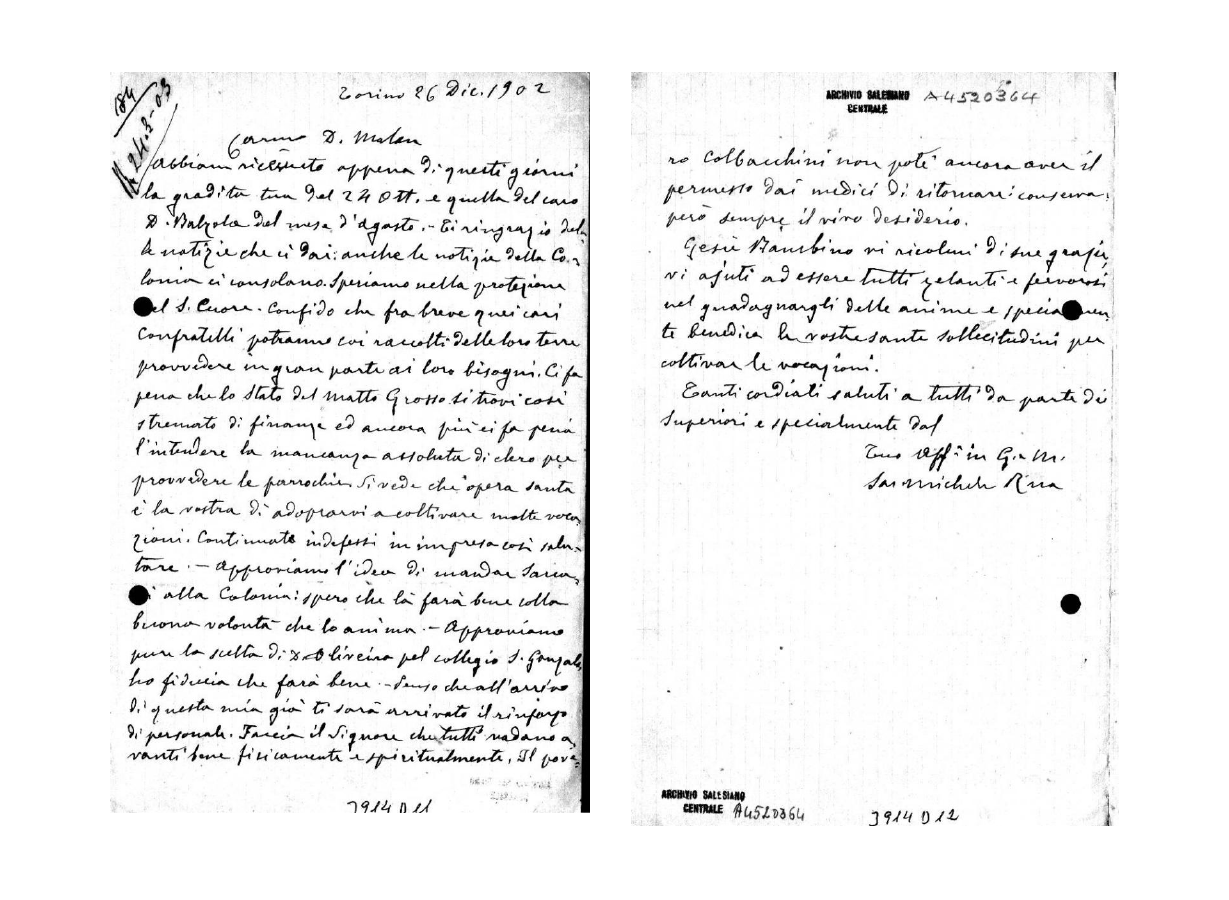 184
R 24-2-03
Torino 26 Dic. 1902
Carmo D. Malan
Abbiam ricevuto appena di questi giorni
la gradita tua del 24 Ott. e quella del caro
D. Balzola del mese d'agosto. - Ti ringrazio del-
le notizie che ci dai: anche le notizie della Co-
lonia ci consolano. Speriamo nella protezione
del S. Cuore. Confido che fra breve quei cari
Confratelli potranno coi raccolti delle loro terre
provvedere in gran parte ai loro bisogni. Ci fa
pena che lo Stato del Matto Grosso si trovi così
stremato di finanze ed ancora più ci fa pena
l'intendere la mancanza assoluta di clero per
provvedere le parrochie. Si vede che opera santa
è la vostra di adoprarvi a coltivare molte voca-
zioni. Continuate indefessi in impresa così salu-
tare. - Approviamo l'idea di mandar
alla Colonia: spero che là farà bene colla
buona volontà che lo anima. - Approviamo
pure la scelta di D. Oliveira pel collegio S. Gonzalo,
ho fiducia che farà bene. - Penso che all'arrivo
di questa mia già ti sarà arrivato il rinforzo
di personale. Faccia il Signore che tutti vadano a-
vanti bene fisicamente e spiritualmente. Il pove-
3914 D 11
ARCHIVIO SALESIANO
CENTRALE
A4520364
ro Colbacchini non poté ancora aver il
permesso dai medici di ritornare: conserva
però sempre il vivo desiderio.
Gesù Bambino vi ricolmi di sue grazie,
vi ajuti ad essere tutti zelanti e fervorosi
nel guadagnargli delle anime e specialmen-
te benedica le vostre sante sollecitudini per
coltivar le vocazioni.
Tanti cordiali saluti a tutti da parte dei
Superiori e specialmente dal
Tuo Aff.º in G. e M.
Sac. Michele Rua
ARCHIVIO SALESIANO
CENTRALE A4520364
3914 D 12